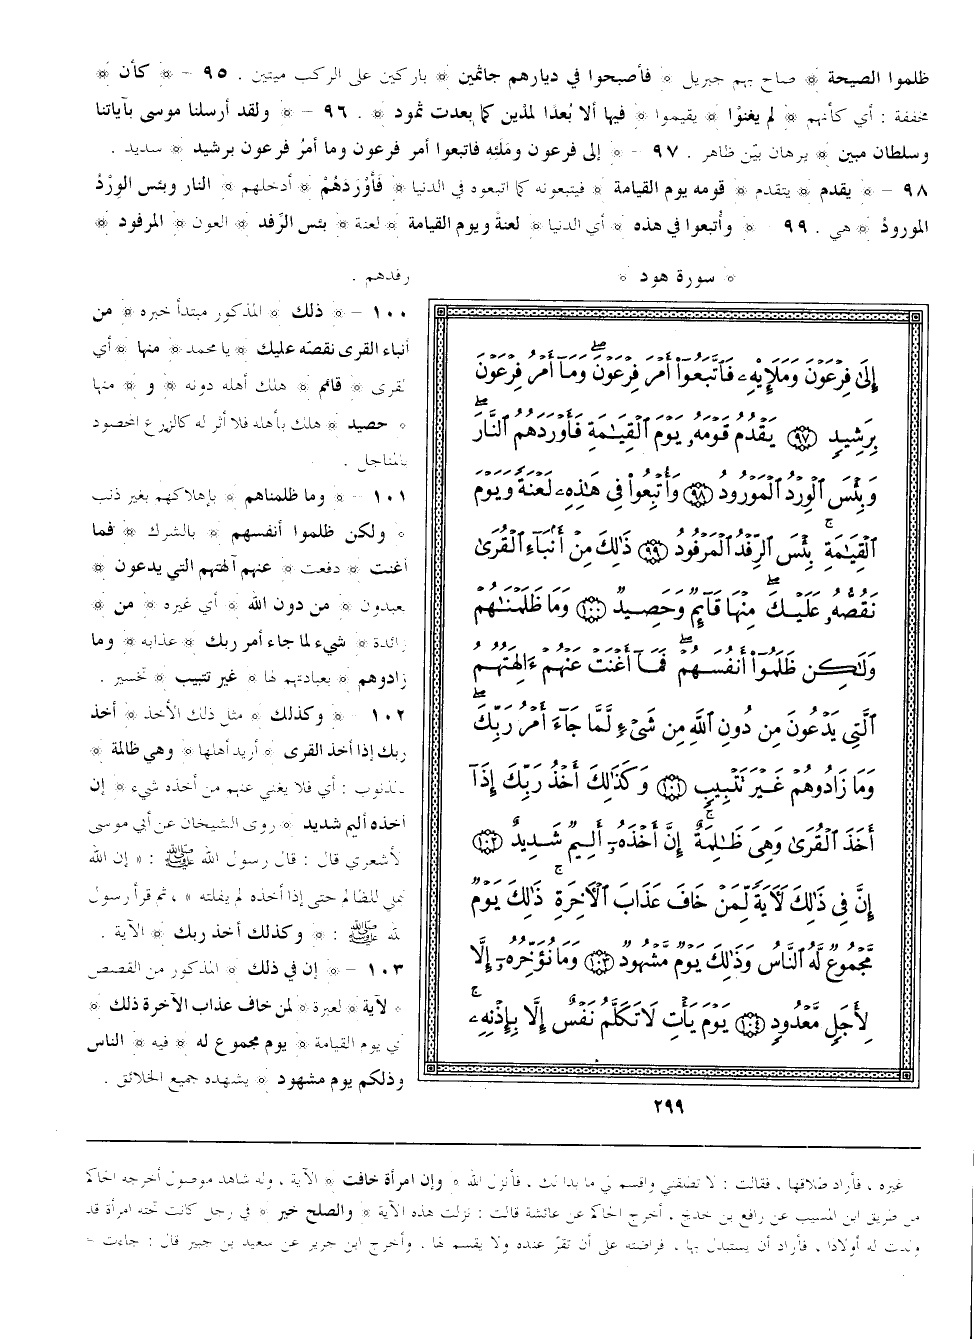 ظلموا الصيحة ﴾ صاح بهم جبريل ﴿ فأصبحوا في ديارهم جاثمين ﴾ باركين على الركب ميتين . ٩٥ - ﴿ كأن ﴾
مخففة : أي كأنهم ﴿ لم يغنَوْا ﴾ يقيموا ﴿ فيها ألا بُعدًا لمدين كما بعدت ثمود ﴾ . ٩٦ - ﴿ ولقد أرسلنا موسى بآياتنا
وسلطان مبين ﴾ برهان بيّن ظاهر . ٩٧ - ﴿ إلى فرعون وملَئه فاتبعوا أمر فرعون وما أمرُ فرعون برشيد ﴾ سديد .
٩٨ - ﴿ يقدم ﴾ يتقدم ﴿ قومه يوم القيامة ﴾ فيتبعونه كما اتبعوه في الدنيا ﴿ فَأَوْرَدَهُمْ ﴾ أدخلهم ﴿ النار وبئس الوِرْدُ
المورودُ ﴾ هي . ٩٩ - ﴿ وأُتبعوا في هذه ﴾ أي الدنيا ﴿ لعنةً ويوم القيامة ﴾ لعنة ﴿ بئس الرِّفد ﴾ العون ﴿ المرفود ﴾
رفدهم .
١٠٠ - ﴿ ذلك ﴾ المذكور مبتدأ خبره ﴿ من
أنباء القرى نقصّه عليك ﴾ يا محمد ﴿ منها ﴾ أي
القرى ﴿ قائم ﴾ هلك أهله دونه ﴿ و ﴾ منها
﴿ حصيد ﴾ هلك بأهله فلا أثر له كالزرع المحصود
بالمناجل .
١٠١ - ﴿ وما ظلمناهم ﴾ بإهلاكهم بغير ذنب
﴿ ولكن ظلموا أنفسهم ﴾ بالشرك ﴿ فما
أغنت ﴾ دفعت ﴿ عنهم آلهتهم التي يدعون ﴾
يعبدون ﴿ من دون الله ﴾ أي غيره ﴿ من ﴾
زائدة ﴿ شيء لما جاء أمر ربك ﴾ عذابه ﴿ وما
زادوهم ﴾ بعبادتهم لها ﴿ غير تتبيب ﴾ تخسير .
١٠٢ - ﴿ وكذلك ﴾ مثل ذلك الأخذ ﴿ أخذ
ربك إذا أخذ القرى ﴾ أريد أهلها ﴿ وهي ظالمة ﴾
بالذنوب : أي فلا يغني عنهم من أخذه شيء ﴿ إن
أخذه أليم شديد ﴾ روى الشيخان عن أبي موسى
الأشعري قال : قال رسول الله ﷺ : « إن الله
ليملي للظالم حتى إذا أخذه لم يفلته » ، ثم قرأ رسول
الله ﷺ : ﴿ وكذلك أخذ ربك ﴾ الآية .
١٠٣ - ﴿ إن في ذلك ﴾ المذكور من القصص
﴿ لآية ﴾ لعبرة ﴿ لمن خاف عذاب الآخرة ذلك ﴾
أي يوم القيامة ﴿ يوم مجموع له ﴾ فيه ﴿ الناس
وذلكم يوم مشهود ﴾ يشهده جميع الخلائق .
﴿ سورة هود ﴾
إِلَىٰ فِرْعَوْنَ وَمَلَإِيْهِۦ فَٱتَّبَعُوٓا۟ أَمْرَ فِرْعَوْنَ ۖ وَمَآ أَمْرُ فِرْعَوْنَ
بِرَشِيدٍ ﴿٩٧﴾ يَقْدُمُ قَوْمَهُۥ يَوْمَ ٱلْقِيَٰمَةِ فَأَوْرَدَهُمُ ٱلنَّارَ ۖ
وَبِئْسَ ٱلْوِرْدُ ٱلْمَوْرُودُ ﴿٩٨﴾ وَأُتْبِعُوا۟ فِى هَٰذِهِۦ لَعْنَةً وَيَوْمَ
ٱلْقِيَٰمَةِ ۚ بِئْسَ ٱلرِّفْدُ ٱلْمَرْفُودُ ﴿٩٩﴾ ذَٰلِكَ مِنْ أَنۢبَآءِ ٱلْقُرَىٰ
نَقُصُّهُۥ عَلَيْكَ ۖ مِنْهَا قَآئِمٌ وَحَصِيدٌ ﴿١٠٠﴾ وَمَا ظَلَمْنَٰهُمْ
وَلَٰكِن ظَلَمُوٓا۟ أَنفُسَهُمْ ۖ فَمَآ أَغْنَتْ عَنْهُمْ ءَالِهَتُهُمُ
ٱلَّتِى يَدْعُونَ مِن دُونِ ٱللَّهِ مِن شَىْءٍ لَّمَّا جَآءَ أَمْرُ رَبِّكَ ۖ
وَمَا زَادُوهُمْ غَيْرَ تَتْبِيبٍ ﴿١٠١﴾ وَكَذَٰلِكَ أَخْذُ رَبِّكَ إِذَآ
أَخَذَ ٱلْقُرَىٰ وَهِىَ ظَٰلِمَةٌ ۚ إِنَّ أَخْذَهُۥٓ أَلِيمٌ شَدِيدٌ ﴿١٠٢﴾
إِنَّ فِى ذَٰلِكَ لَءَايَةً لِّمَنْ خَافَ عَذَابَ ٱلْءَاخِرَةِ ۚ ذَٰلِكَ يَوْمٌ
مَّجْمُوعٌ لَّهُ ٱلنَّاسُ وَذَٰلِكَ يَوْمٌ مَّشْهُودٌ ﴿١٠٣﴾ وَمَا نُؤَخِّرُهُۥٓ إِلَّا
لِأَجَلٍ مَّعْدُودٍ ﴿١٠٤﴾ يَوْمَ يَأْتِ لَا تَكَلَّمُ نَفْسٌ إِلَّا بِإِذْنِهِۦ ۚ
٢٩٩
غيره ، فأراد طلاقها ، فقالت : لا تطلقني واقسم لي ما بدا لك ، فأنزل الله ﴿ وإن امرأة خافت ﴾ الآية ، وله شاهد موصول أخرجه الحاكم
من طريق ابن المسيب عن رافع بن خديج ، أخرج الحاكم عن عائشة قالت : نزلت هذه الآية ﴿ والصلح خير ﴾ في رجل كانت تحته امرأة قد
ولدت له أولادا ، فأراد أن يستبدل بها ، فراضته على أن تقرّ عنده ولا يقسم لها . وأخرج ابن جرير عن سعيد بن جبير قال : جاءت =